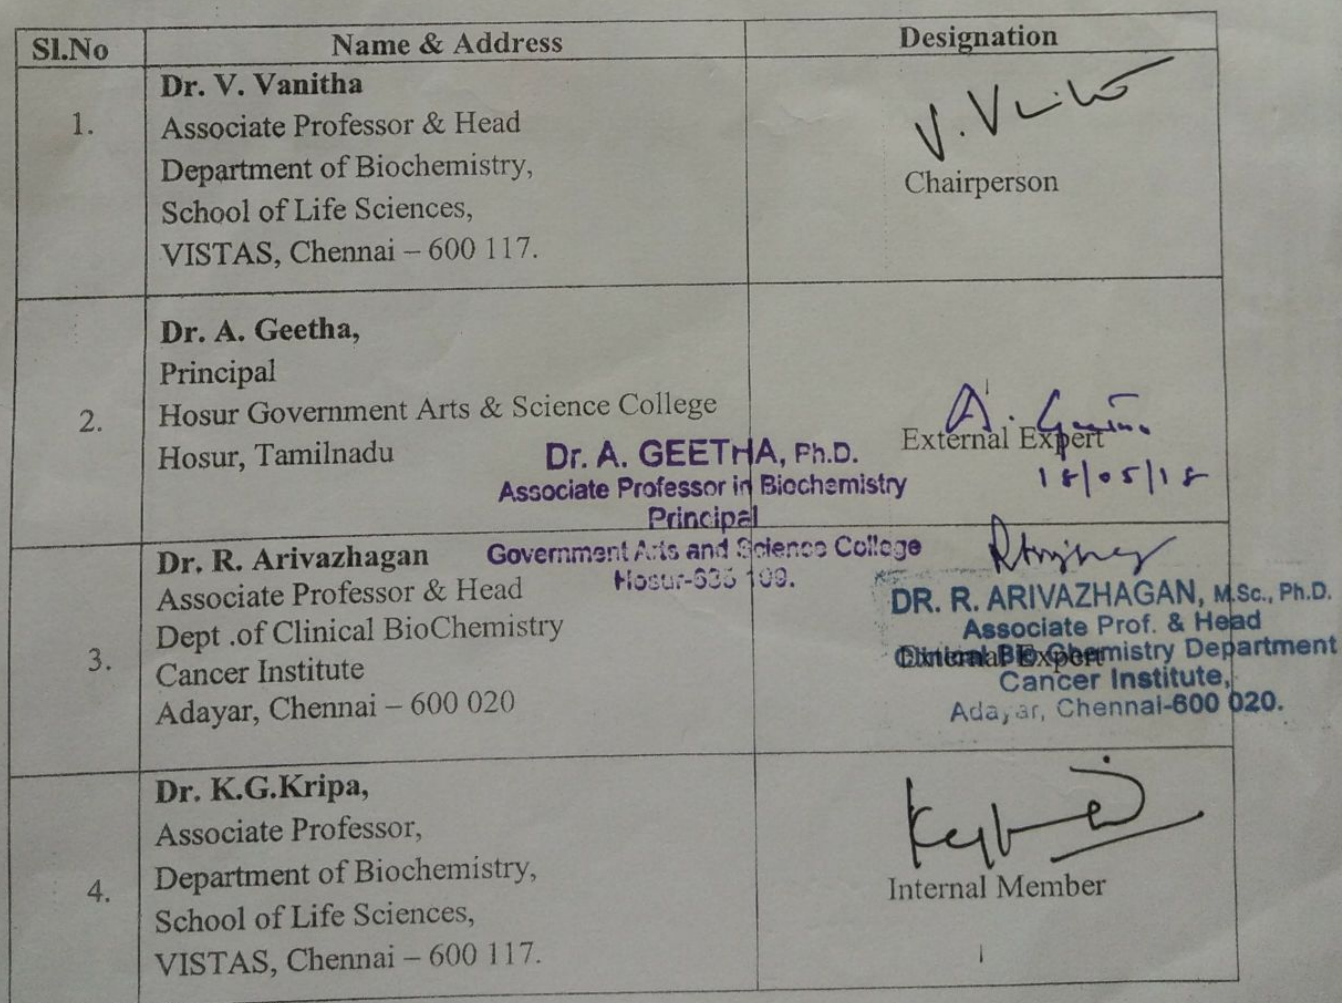 Sl.No Name & Address Designation
1. Dr. V. Vanitha
Associate Professor & Head
Department of Biochemistry,
School of Life Sciences,
VISTAS, Chennai – 600 117.
Chairperson
2. Dr. A. Geetha,
Principal
Hosur Government Arts & Science College
Hosur, Tamilnadu
External Expert
18/05/18
Dr. A. GEETHA, Ph.D.
Associate Professor in Biochemistry
Principal
Government Arts and Science College
Hosur-635 109.
3. Dr. R. Arivazhagan
Associate Professor & Head
Dept .of Clinical BioChemistry
Cancer Institute
Adayar, Chennai – 600 020
External Expert
DR. R. ARIVAZHAGAN, M.Sc., Ph.D.
Associate Prof. & Head
Clinical Bio Chemistry Department
Cancer Institute,
Adayar, Chennai-600 020.
4. Dr. K.G.Kripa,
Associate Professor,
Department of Biochemistry,
School of Life Sciences,
VISTAS, Chennai – 600 117.
Internal Member